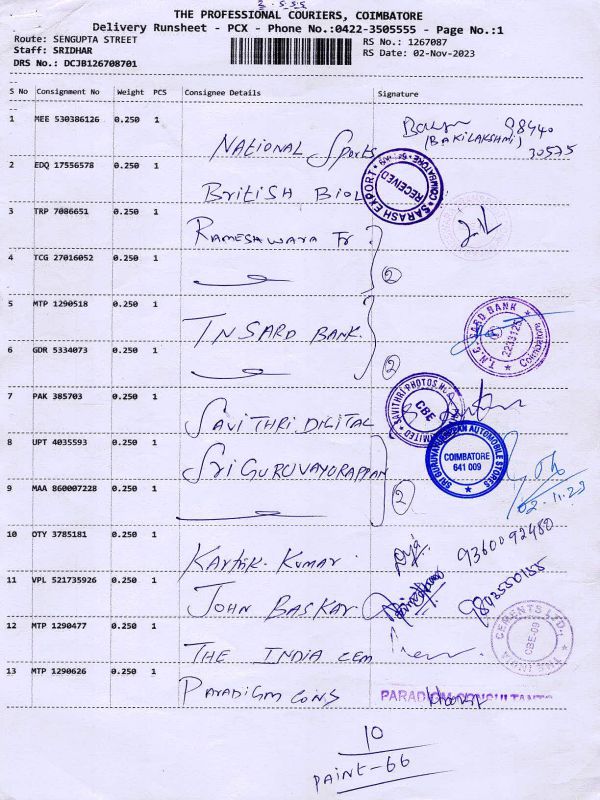 THE PROFESSIONAL COURIERS, COIMBATORE
Delivery Runsheet - PCX - Phone No.:0422-3505555 - Page No.:1
Route: SENGUPTA STREET
RS No.: 1267087
Staff: SRIDHAR
RS Date: 02-Nov-2023
DRS No.: DCJB126708701
S No Consignment No Weight PCS Consignee Details Signature
1 MEE 530386126 0.250 1 NATIONAL Sports (BAKILAKSHMI) 98440 30575
2 EDQ 17556578 0.250 1 BRITISH BIOL
SARASH EXPORT RECEIVED
3 TRP 7086651 0.250 1 RAMESHWARA Tr
4 TCG 27016052 0.250 1 2
5 MTP 1290518 0.250 1 TNSARD BANK
T.N.C. SARD BANK
6 GDR 5334073 0.250 1 2
7 PAK 385703 0.250 1 SAVITHRI DIGITAL
SAVITHRI PHOTOS LIMITED CBE
8 UPT 4035593 0.250 1 SRI GURUVAYORAPPAN
SRI GURUVAYURAPPAN AUTOMOBILE STORES COIMBATORE 641 009
02.11.23
9 MAA 860007228 0.250 1 2
10 OTY 3785181 0.250 1 Karthik Kumar 9360092480
11 VPL 521735926 0.250 1 JOHN BASKAR
12 MTP 1290477 0.250 1 THE INDIA CEM
CEMENTS LTD., CBE-09
13 MTP 1290626 0.250 1 PARADIGM CONS
PARADIGM CONSULTANTS
10
PAINT-66